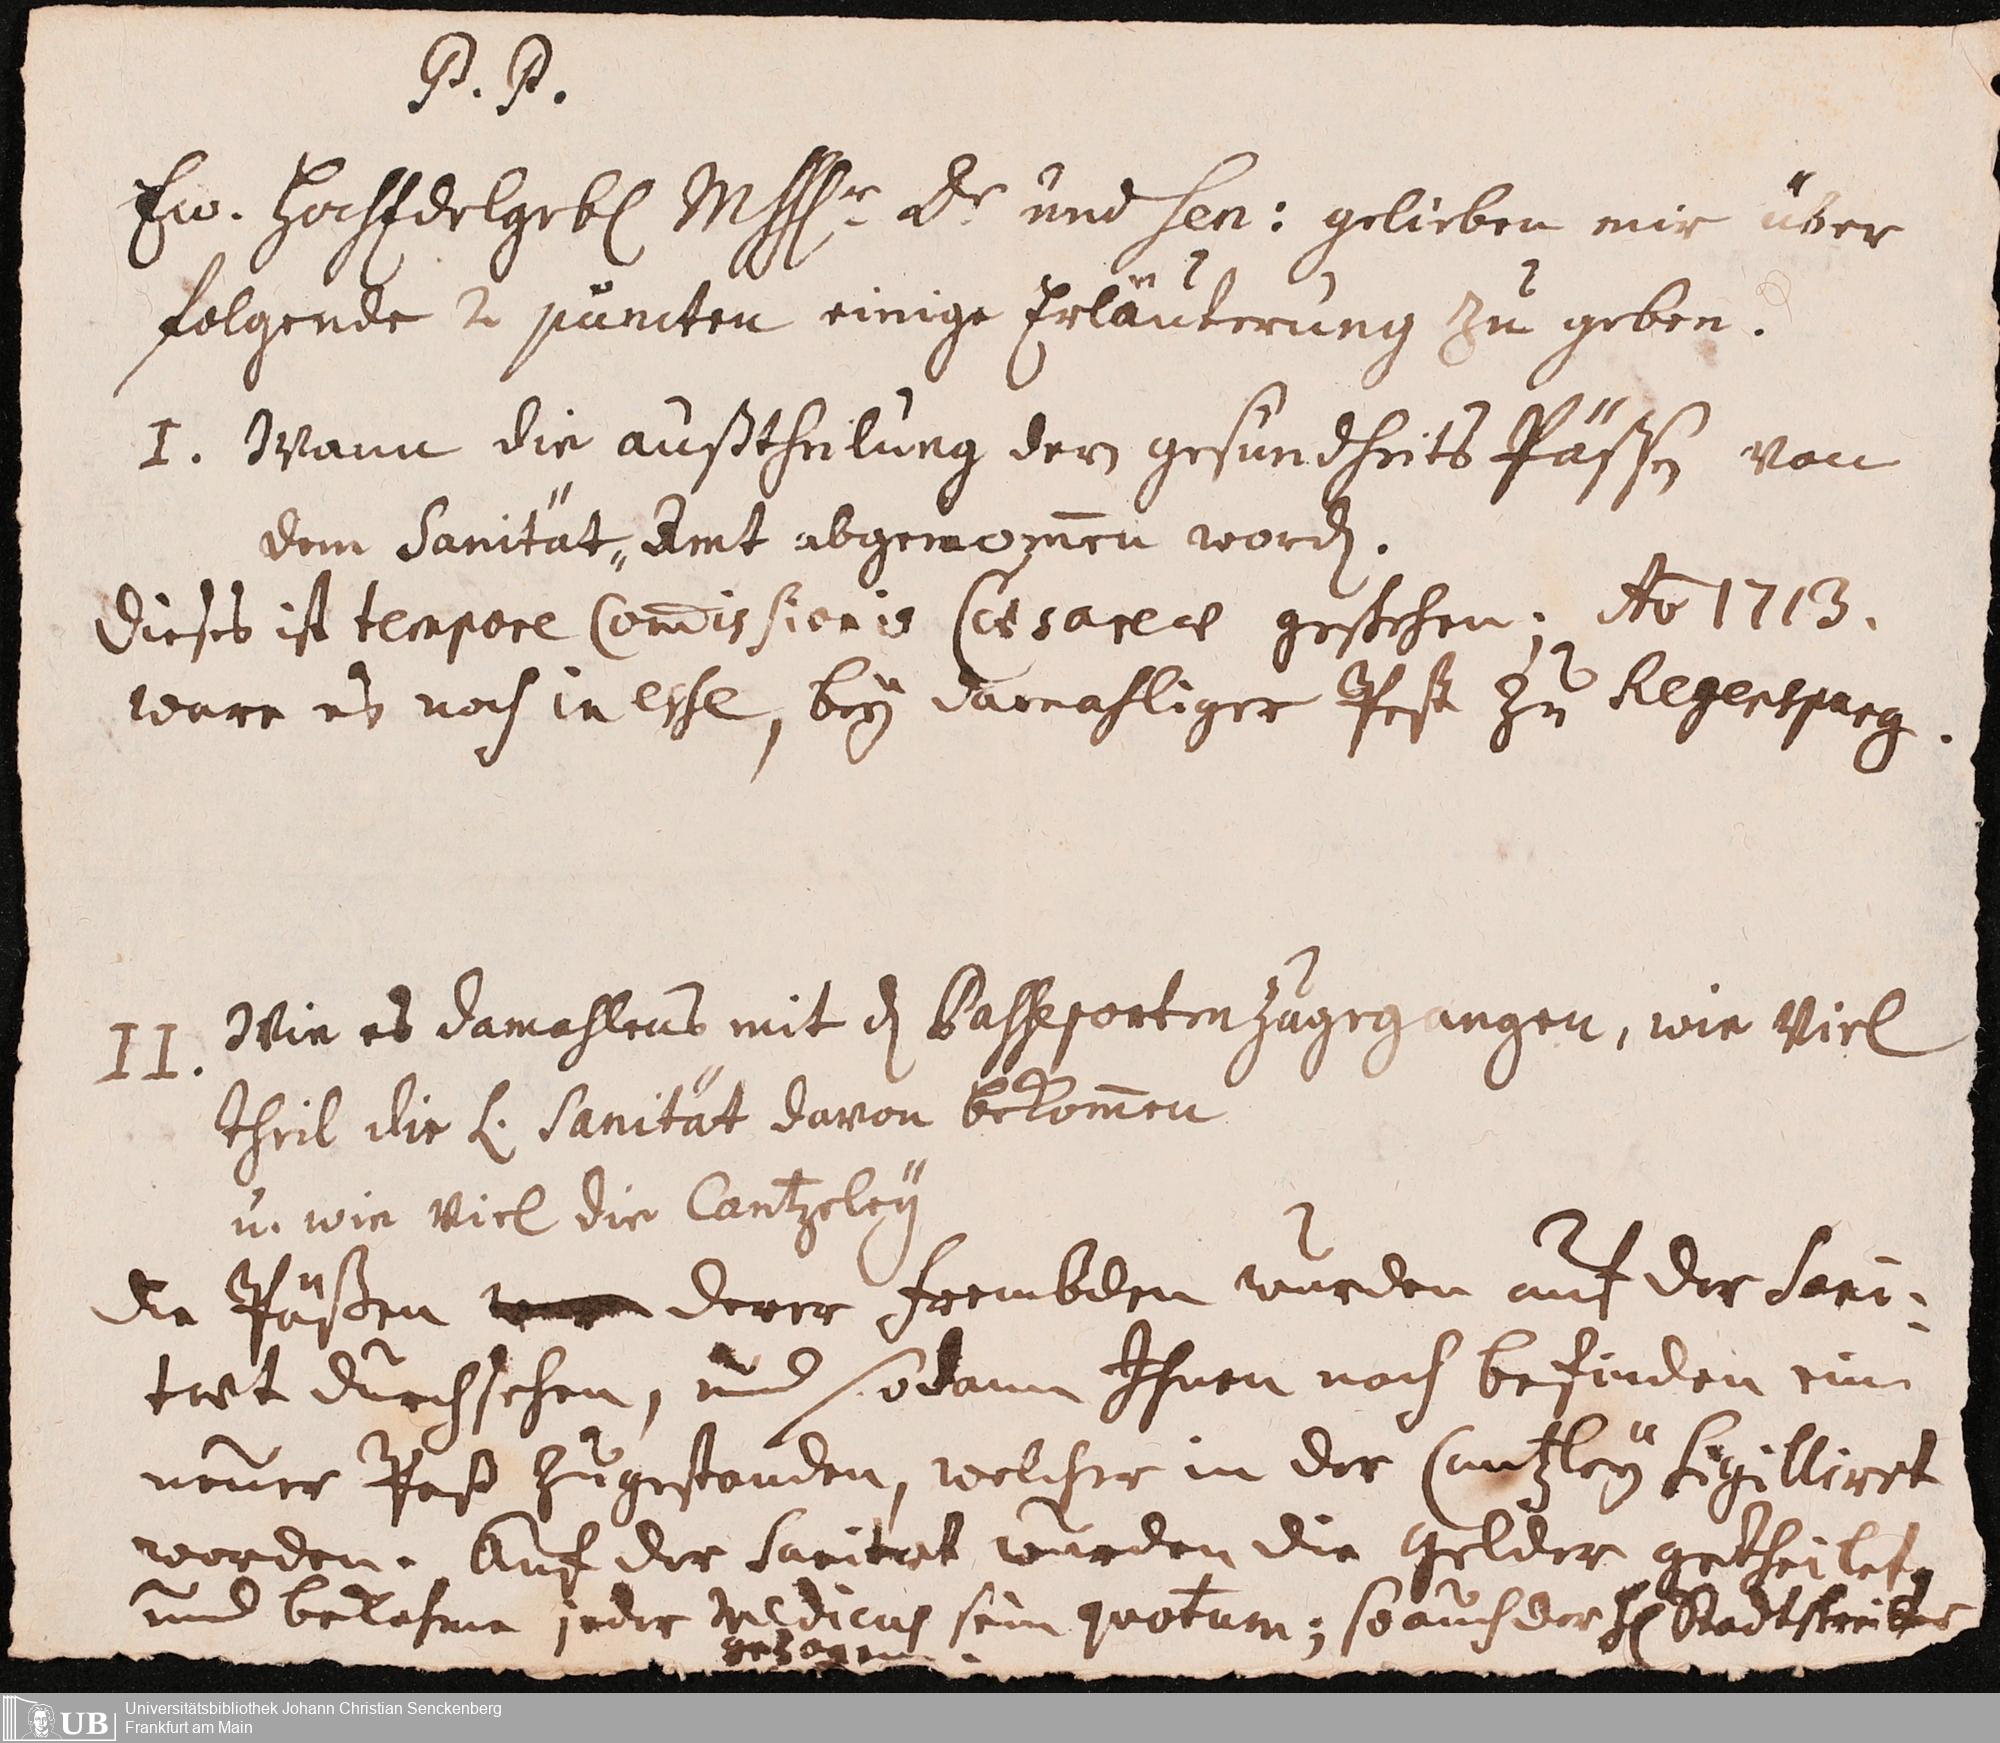 P. P.
Ew. HochEdelgebl MhhHr Dr und Sen: gelieben mir über
folgende 2 puncten einige Erläuterung zu geben.
I. Wann die außtheilung der gesundheits Pässe von
dem Sanität„ Amt abgenom̅en word.
Dieses ist tempore Com̅issionis Cæsareæ geschehen; Ao 1713.
ware es noch in esse, beÿ damahliger Pest zu Regenspurg.
II. Wie es damahlens mit d Passeporten zugegangen, wie viel
theil die L. Sanität davon bekom̅en
u. wie viel die Cantzeleÿ
die Päßen derer frembden wurden auf der Sani-
tæt durchsehen, und sodann Ihnen nach befinden ein
neuer Paß zugestanden, welcher in der Cantzleÿ sigilliret
worden. Auf der Sanitæt wurden die gelder getheilet,
und bekahme jeder Medicus sein quotum; so auch der H Stadtschreiber
gezogen.
Universitätsbibliothek Johann Christian Senckenberg
Frankfurt am Main
UB